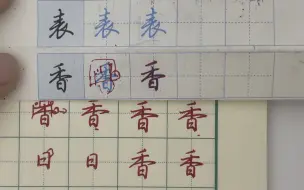 表 表 表
香 香 香
香 香 香 香
日 日 香 香